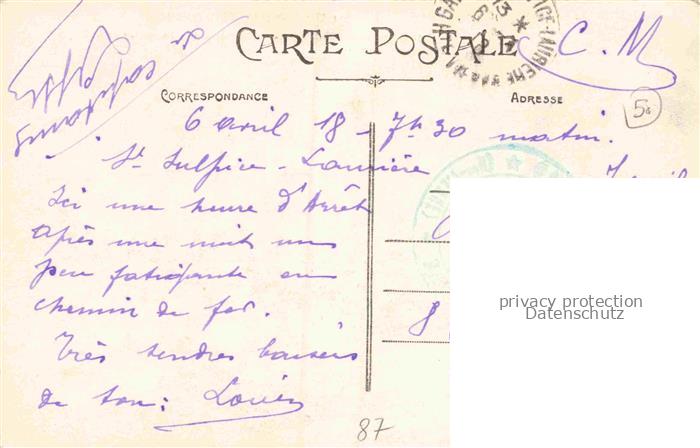 CARTE POSTALE
C. M
CORRESPONDANCE
ADRESSE
50
6 avril 18 - 7h30 matin.
St Sulpice - Laurière
Ici une heure d'Arrêt
Après une nuit un
peu fatigante en
chemin de fer.
Très tendres baisers
de ton: Louis
8
87
privacy protection
Datenschutz